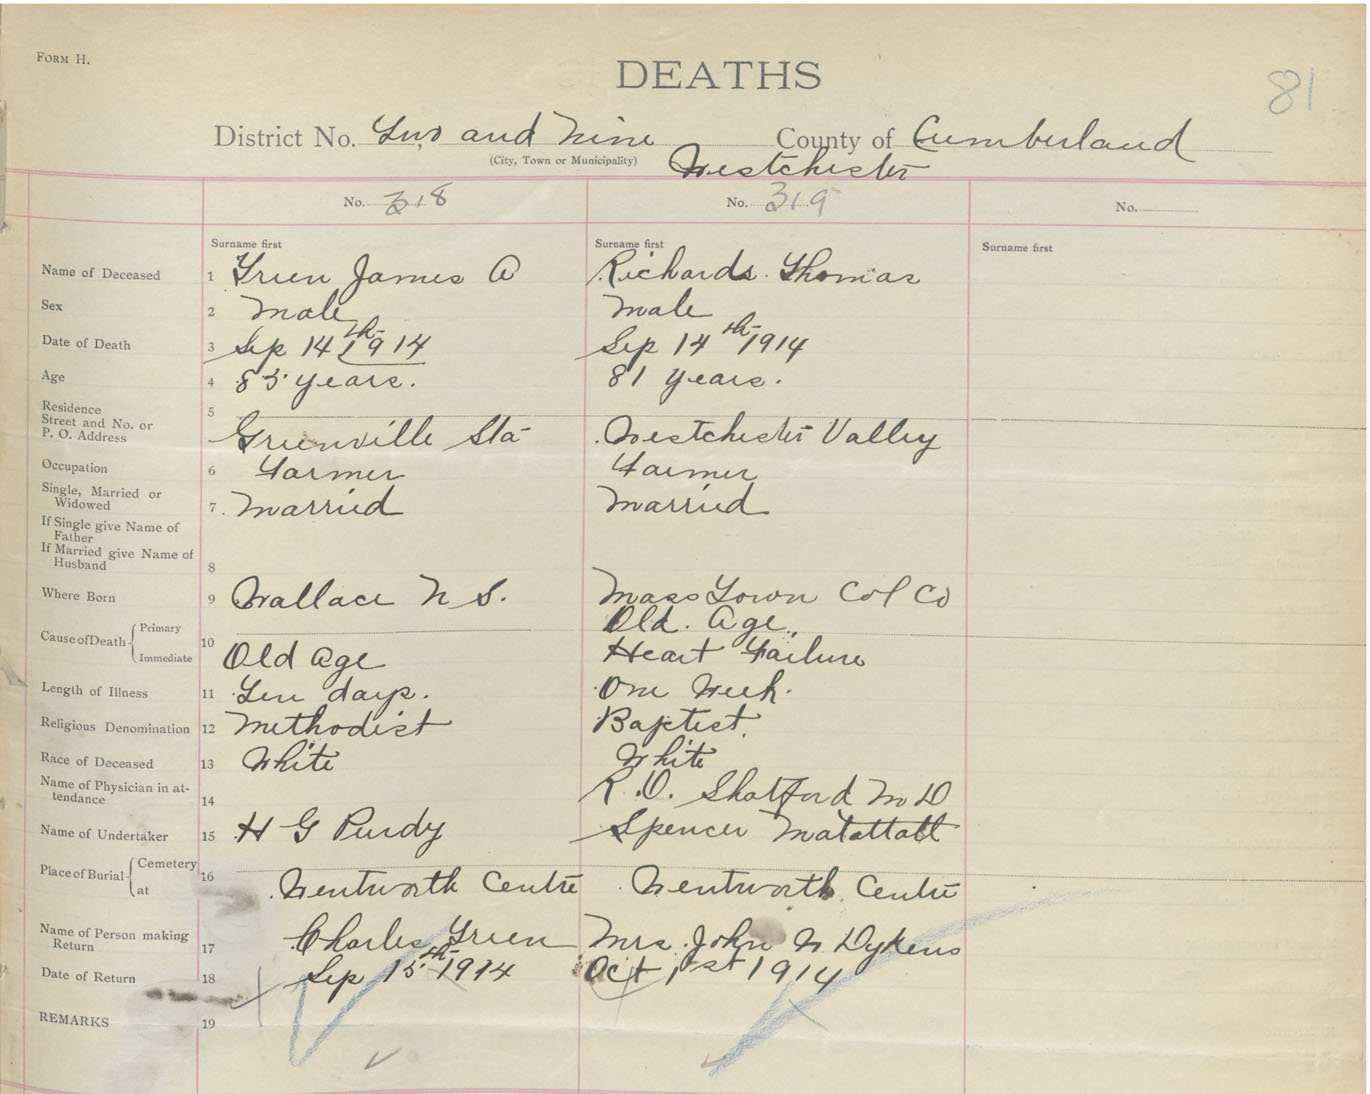 FORM H.
81
DEATHS
District No. Two and Nine County of Cumberland
(City, Town or Municipality) Westchester
No. 318 No. 319 No.
Surname first Surname first Surname first
Name of Deceased 1 Green James A Richards Thomas
Sex 2 Male Male
Date of Death 3 Sep 14th 1914 Sep 14th 1914
Age 4 85 years. 81 years.
Residence
Street and No. or
P. O. Address 5 Greenville Sta Westchester Valley
Occupation 6 Farmer Farmer
Single, Married or
Widowed 7 Married Married
If Single give Name of
Father
If Married give Name of
Husband 8
Where Born 9 Wallace N S. Mass Town Col Co
Cause of Death Primary 10 Old Age
Immediate Old Age Heart Failure
Length of Illness 11 Ten days. One Week.
Religious Denomination 12 Methodist Baptist.
Race of Deceased 13 White White
Name of Physician in at-
tendance 14 R. D. Shatford M D
Name of Undertaker 15 H G Purdy Spencer Matattall
Place of Burial Cemetery
at 16 Wentworth Centre Wentworth Centre
Name of Person making
Return 17 Charles Green Mrs. John W Dykens
Date of Return 18 Sep 15th 1914 Oct 1st 1914
REMARKS 19